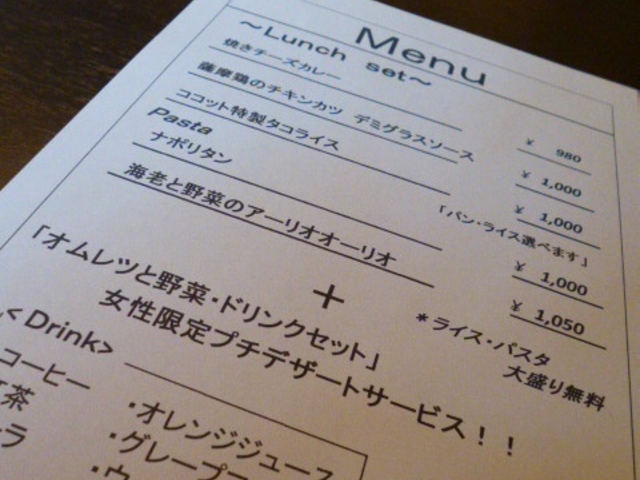 Menu
～Lunch set～
焼きチーズカレー ￥ 980
薩摩鶏のチキンカツ デミグラスソース ￥ 1,000
ココット特製タコライス ￥ 1,000
Pasta 「パン・ライス選べます」
ナポリタン ￥ 1,000
海老と野菜のアーリオオーリオ ￥ 1,050
＋
＊ライス・パスタ
大盛り無料
「オムレツと野菜・ドリンクセット」
女性限定プチデザートサービス！！
＜Drink＞
コーヒー ・オレンジジュース
茶 ・グレープ
ラ ・ウ